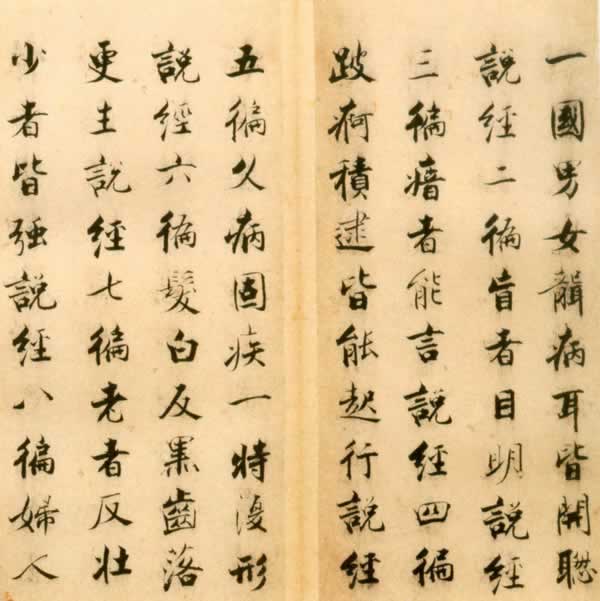 一國男女聾病耳皆開聰
說經二徧盲者目明說經
三徧瘖者能言說經四徧
跛痾積逮皆能起行說經
五徧久病固疾一時復形
說經六徧髮白反黑齒落
更生說經七徧老者反壯
少者皆强說經八徧婦人